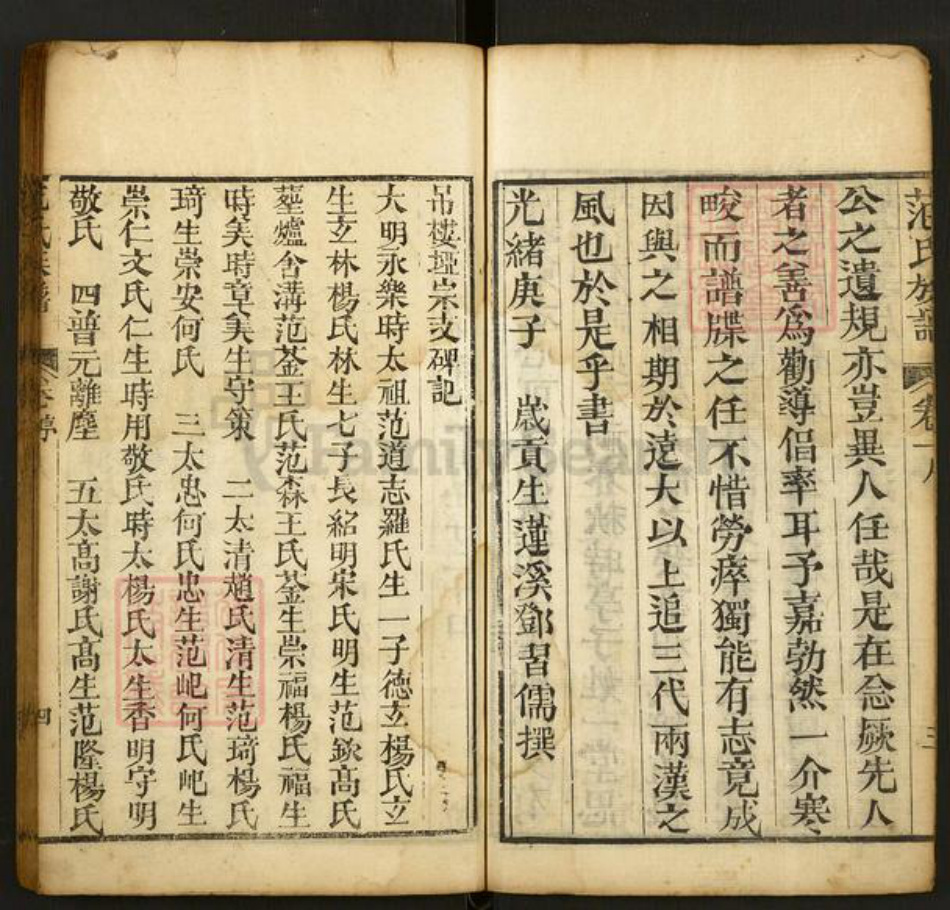 范氏族譜 卷一 三
公之遺規亦豈異人任哉是在念厥先人
者之善為勸導倡率耳予嘉勃然一介寒
畯而譜牒之任不惜勞瘁獨能有志竟成
因與之相期於遠大以上追三代兩漢之
風也於是乎書
光緒庚子 歲貢生蓮溪鄧習儒撰
吊樓埡宗支碑記
大明永樂時太祖范道志羅氏生一子德玄楊氏玄
生玄林楊氏林生七子長紹明宋氏明生范欽高氏
塟爐舍溝范荃王氏范森王氏荃生崇福楊氏福生
時美時章美生守策 二太清趙氏清生范琦楊氏
琦生崇安何氏 三太忠何氏忠生范屺何氏屺生
崇仁文氏仁生時用敬氏時太楊氏太生香明守明
敬氏 四普元離塵 五太高謝氏高生范隆楊氏
范氏族譜 四